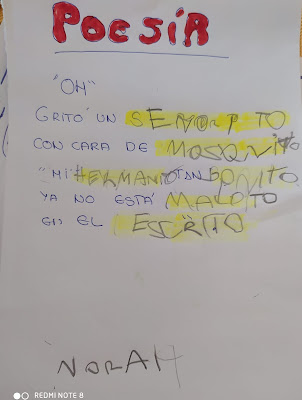 POESÍA
"OH"
GRITÓ UN SEÑORITO
CON CARA DE MOSQUITO
"MI HERMANITO TAN BONITO
YA NO ESTÁ MALDITO
EN EL ESCRITO
NORAH
REDMI NOTE 8